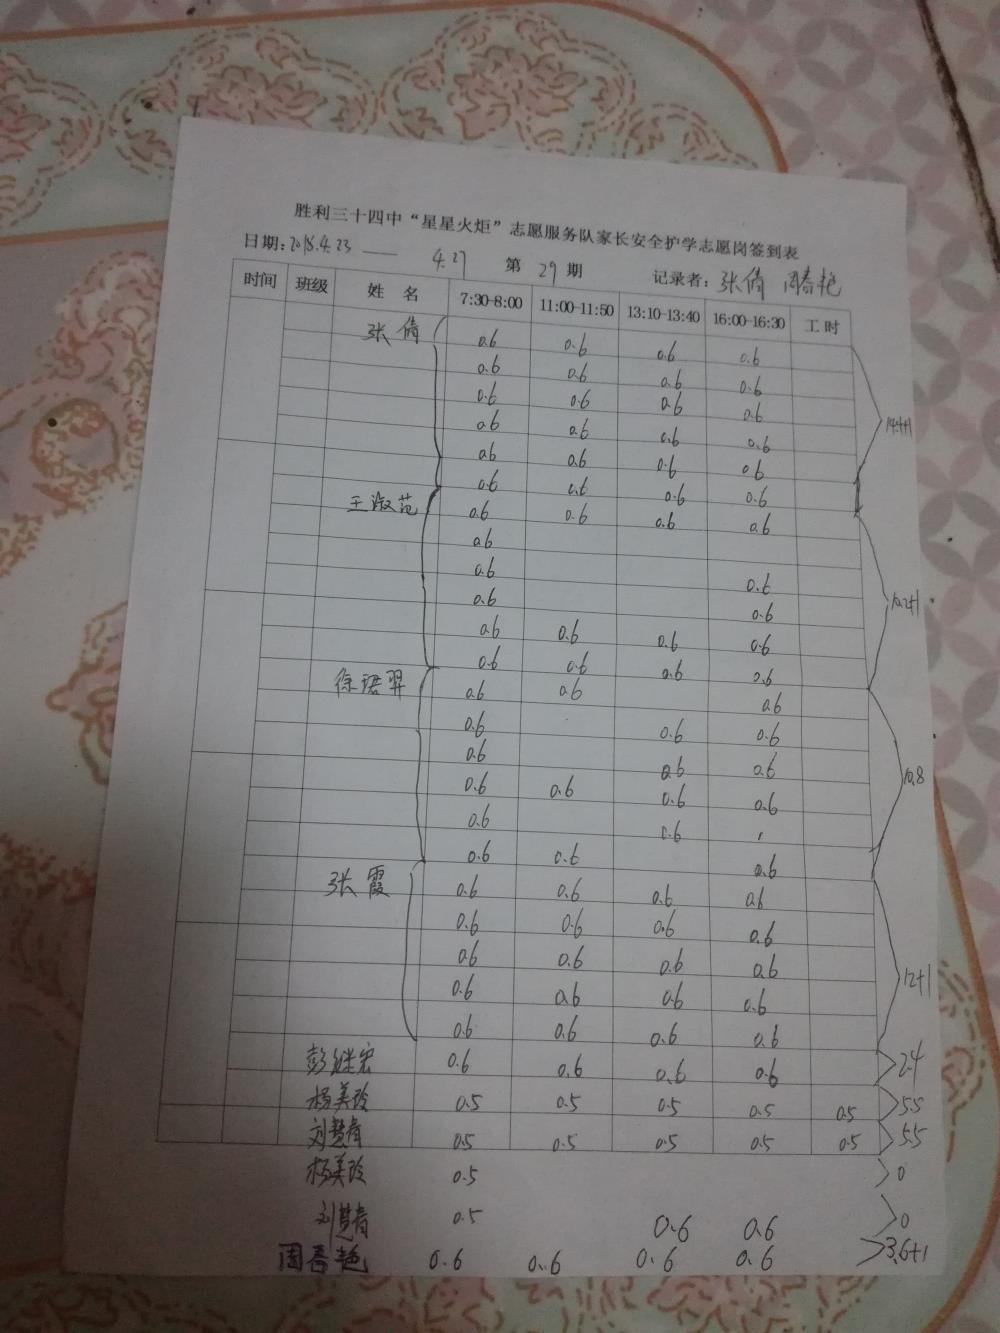 胜利三十四中“星星火炬”志愿服务队家长安全护学志愿岗签到表
日期:2018.4.23 —— 4.27 第 29 期 记录者:张倩 周春艳
时间 班级 姓 名 7:30-8:00 11:00-11:50 13:10-13:40 16:00-16:30 工时
张倩 0.6 0.6 0.6 0.6
0.6 0.6 0.6 0.6
0.6 0.6 0.6 0.6
0.6 0.6 0.6 0.6
0.6 0.6 0.6 0.6
0.6 0.6 0.6 0.6 14.4+1
王淑范 0.6 0.6 0.6 0.6
0.6
0.6 0.6
0.6 0.6
0.6 0.6 0.6 0.6
0.6 0.6 0.6 0.6 10.2+1
徐珺羿 0.6 0.6 0.6
0.6 0.6 0.6
0.6 0.6 0.6
0.6 0.6 0.6 0.6
0.6 0.6
0.6 0.6 0.6 10.8
张霞 0.6 0.6 0.6 0.6
0.6 0.6 0.6 0.6
0.6 0.6 0.6 0.6
0.6 0.6 0.6 0.6
0.6 0.6 0.6 0.6 12+1
彭继宏 0.6 0.6 0.6 0.6 2.4
杨美玲 0.5 0.5 0.5 0.5 0.5 5.5
刘慧青 0.5 0.5 0.5 0.5 0.5 5.5
杨美玲 0.5 0
刘慧青 0.5 0.6 0.6 0
周春艳 0.6 0.6 0.6 0.6 3.6+1